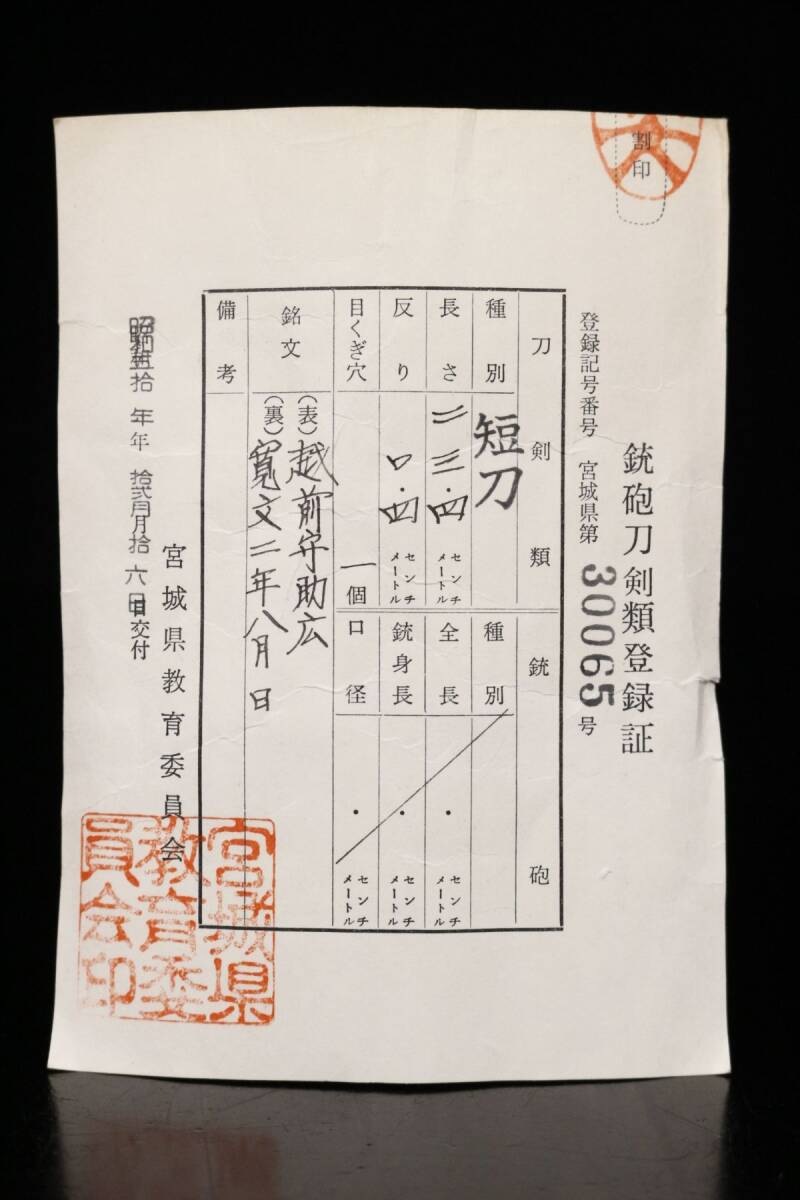 割印
銃砲刀剣類登録証
登録記号番号 宮城県第 30065 号
刀剣類
種別 短刀
長さ 二三・四 センチメートル
反り 〇・四 センチメートル
目くぎ穴 一個
銃砲
種別
全長 ・ センチメートル
銃身長 ・ センチメートル
口径 ・ センチメートル
銘文 (表) 越前守助広
(裏) 寛文二年八月日
備考
宮城県教育委員会
年 拾弐月 拾六日 交付
宮城県教育委員会印